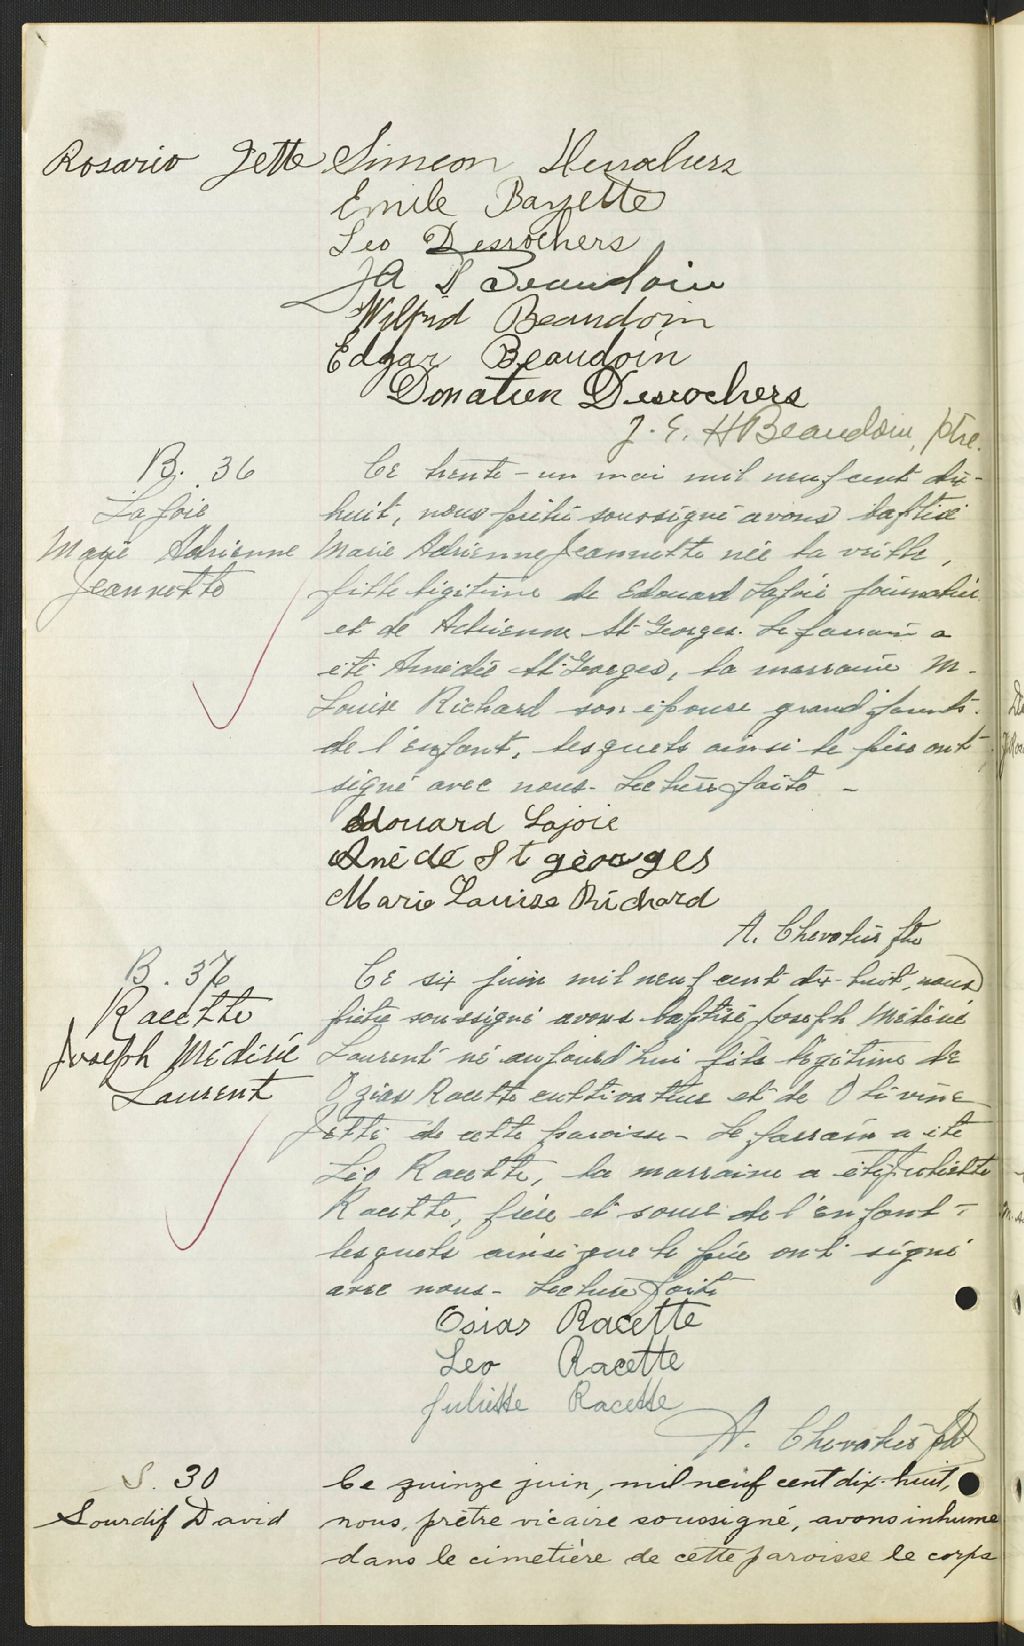 Rosario Jette Simeon
Emile Bayette
Leo Desrochers
JA D Beaudoin
Wilfrid Beaudoin
Edgar Beaudoin
Donatien Desrochers
J. E. H Beaudoin, ptre.
B. 36
Lajoie
Marie Adrienne
Jeannette
Ce trente-un mai mil neuf cent dix-
huit, nous prêtre soussigné avons baptisé
Marie Adrienne Jeannette née la veille,
fille légitime de Edouard Lajoie journalier
et de Adrienne St-Georges. Le parrain a
été Amédée St-Georges, la marraine M-
Louise Richard son épouse grand parents
de l'enfant, lesquels ainsi le père ont
signé avec nous. Lecture faite -
Edouard Lajoie
Anédé St georges
Marie Louise Richard
A. Chevalier ptre
B. 37
Racette
Joseph Médéric
Laurent
Ce six juin mil neuf cent dix-huit, nous
prêtre soussigné avons baptisé Joseph Médéric
Laurent né aujourd'hui fils légitime de
Ozias Racette cultivateur et de Olivine
Jetté de cette paroisse - Le parrain a été
Léo Racette, la marraine a été Juliette
Racette, frère et soeur de l'enfant -
lesquels ainsi que le père ont signé
avec nous - Lecture faite
Osias Racette
Leo Racette
Juliette Racette
A. Chevalier ptre
S. 30
Sourdif David
Ce quinze juin, mil neuf cent dix-huit,
nous, prêtre vicaire soussigné, avons inhumé
dans le cimetière de cette paroisse le corps